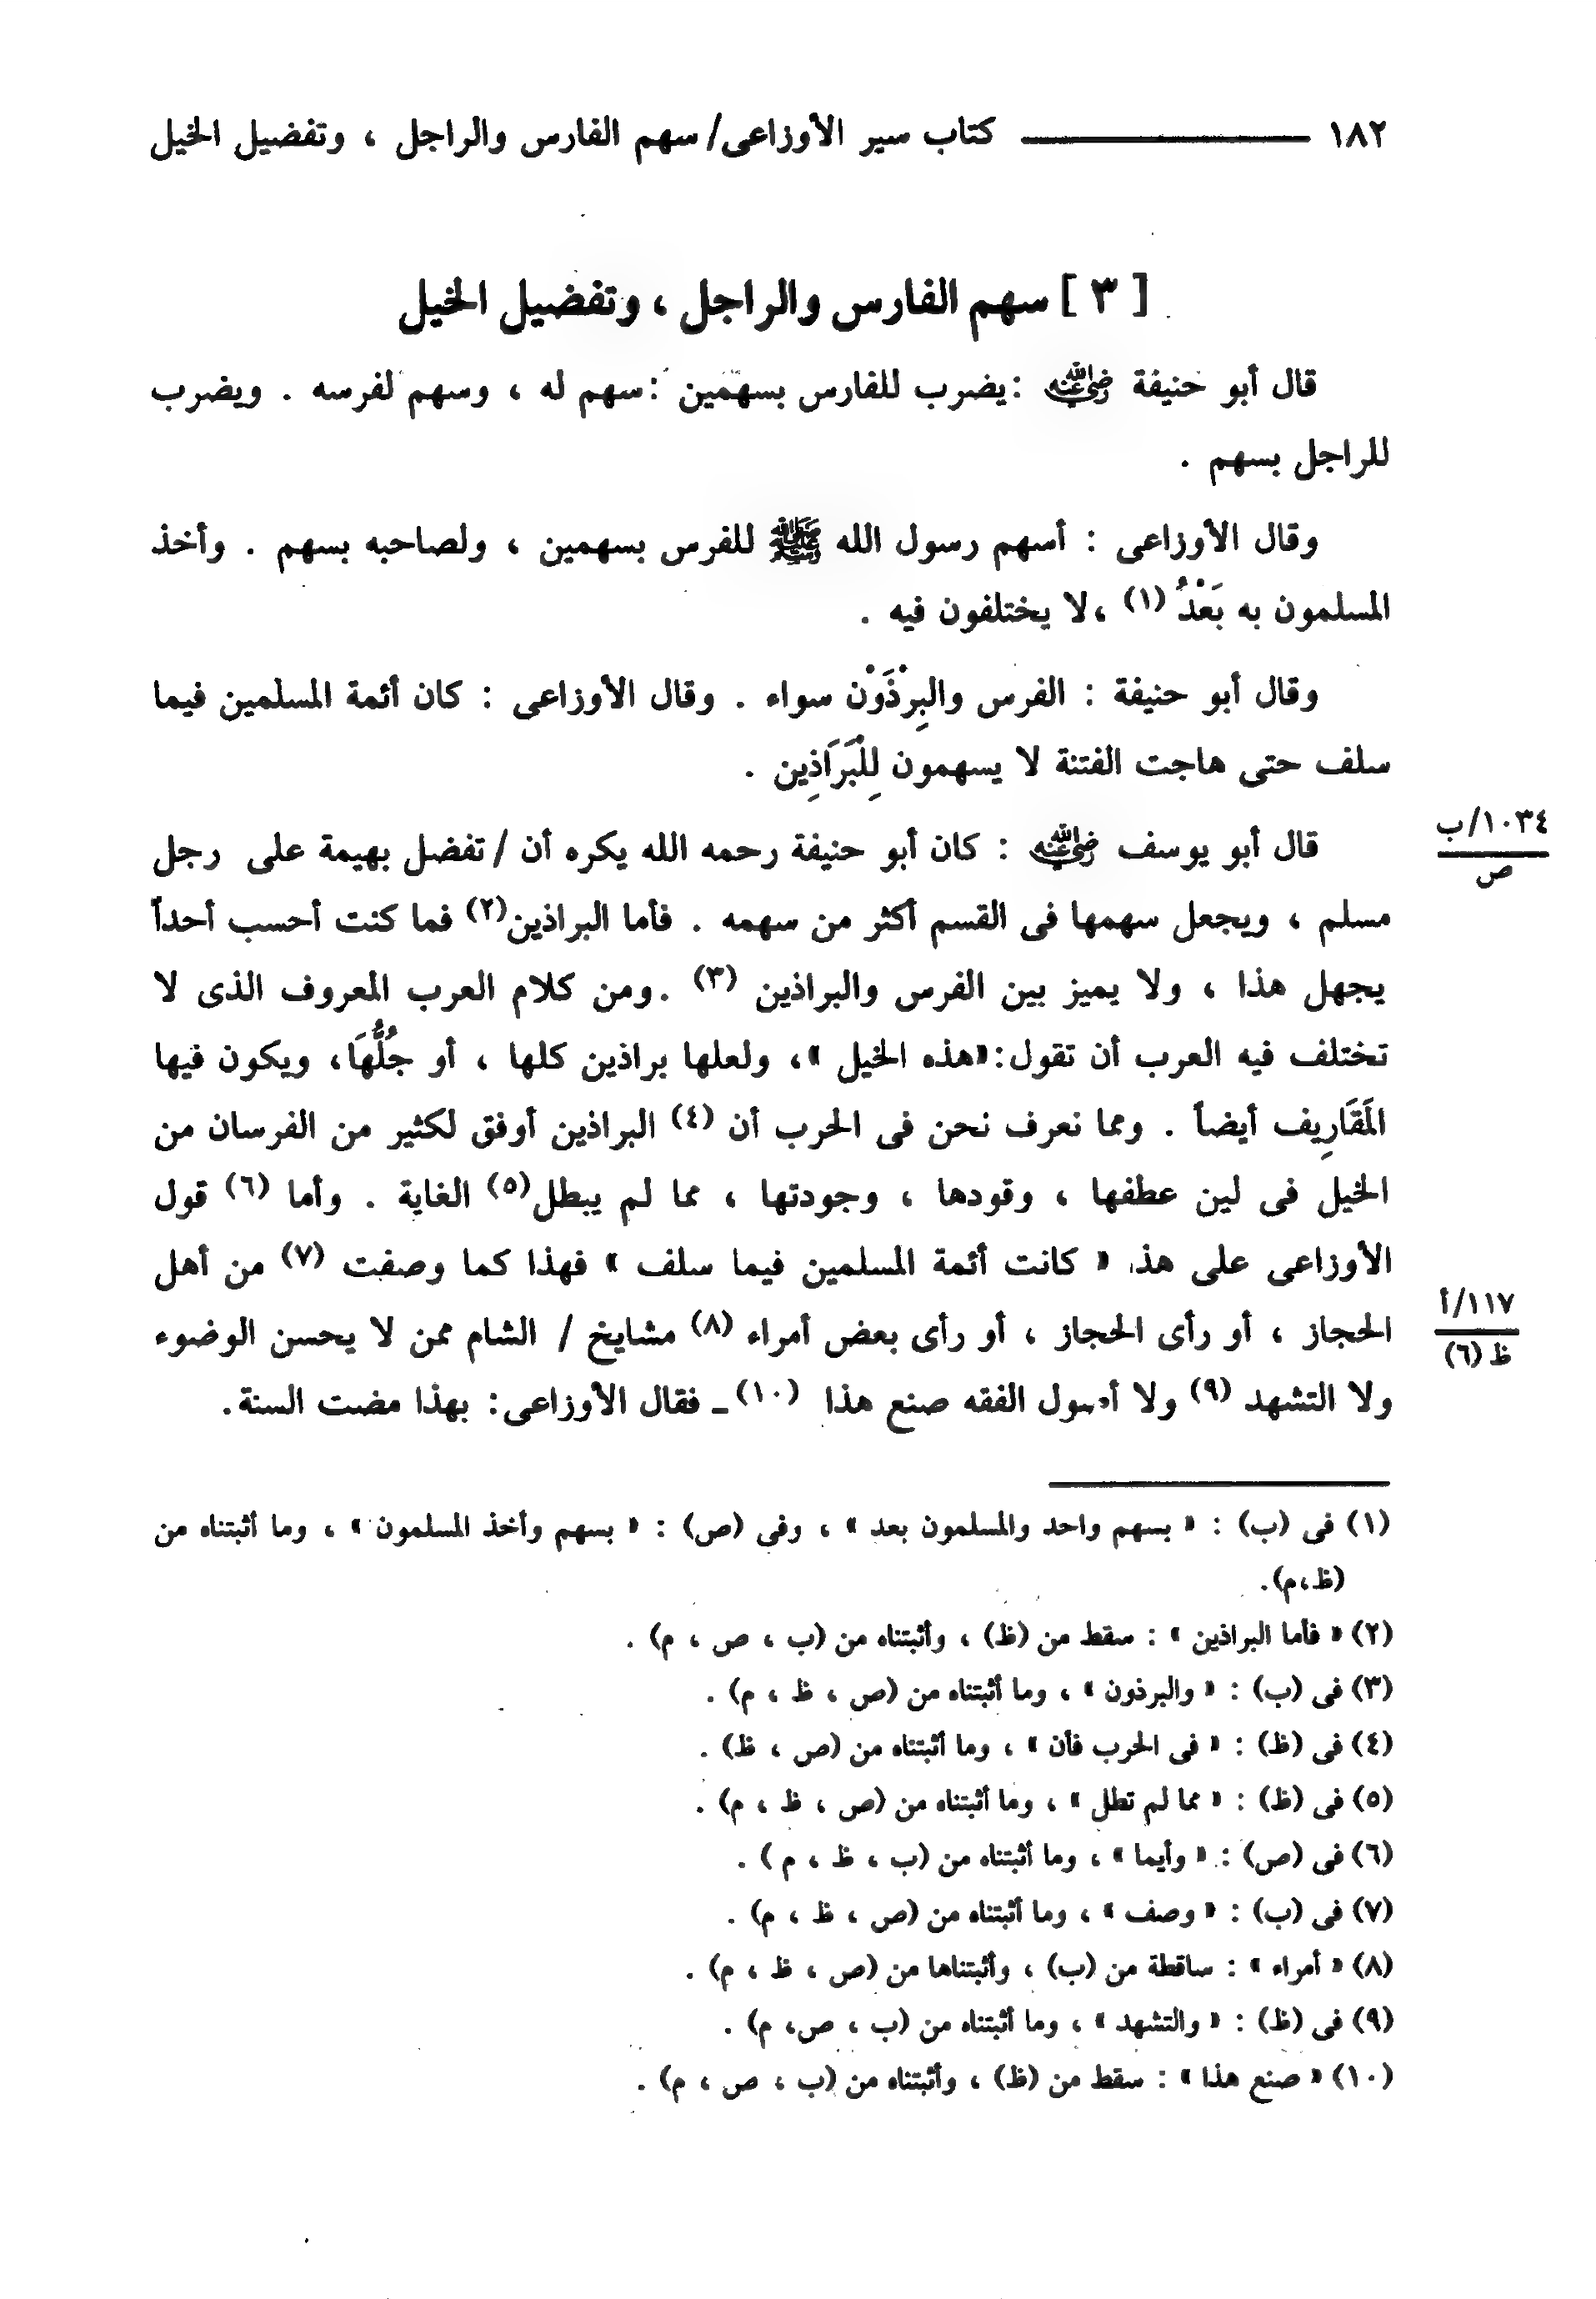 ١٨٢ ــــــــــــــ كتاب سير الأوزاعى/ سهم الفارس والراجل ، وتفضيل الخيل
[ ٣ ] سهم الفارس والراجل ، وتفضيل الخيل
قال أبو حنيفة رضي الله عنه : يضرب للفارس بسهمين : سهم له ، وسهم لفرسه . ويضرب
للراجل بسهم .
وقال الأوزاعى : أسهم رسول الله ﷺ للفرس بسهمين ، ولصاحبه بسهم . وأخذ
المسلمون به بَعْدُ (١) ،لا يختلفون فيه .
وقال أبو حنيفة : الفرس والبِرْذَوْن سواء . وقال الأوزاعى : كان أئمة المسلمين فيما
سلف حتى هاجت الفتنة لا يسهمون لِلْبَرَاذِين .
قال أبو يوسف رضي الله عنه : كان أبو حنيفة رحمه الله يكره أن / تفضل بهيمة على رجل
١٠٣٤/ب
ص
مسلم ، ويجعل سهمها فى القسم أكثر من سهمه . فأما البراذين(٢) فما كنت أحسب أحداً
يجهل هذا ، ولا يميز بين الفرس والبراذين (٣) .ومن كلام العرب المعروف الذى لا
تختلف فيه العرب أن تقول:«هذه الخيل »، ولعلها براذين كلها ، أو جُلُّهَا، ويكون فيها
المَقَارِيف أيضاً . ومما نعرف نحن فى الحرب أن (٤) البراذين أوفق لكثير من الفرسان من
الخيل فى لين عطفها ، وقودها ، وجودتها ، مما لم يبطل(٥) الغاية . وأما (٦) قول
الأوزاعى على هذا « كانت أئمة المسلمين فيما سلف » فهذا كما وصفت (٧) من أهل
الحجاز ، أو رأى الحجاز ، أو رأى بعض أمراء (٨) مشايخ / الشام ممن لا يحسن الوضوء
١١٧/أ
ظ (٦)
ولا التشهد (٩) ولا أصول الفقه صنع هذا (١٠) ــ فقال الأوزاعى: بهذا مضت السنة.
(١) فى (ب) : « بسهم واحد والمسلمون بعد » ، وفى (ص) : « بسهم وأخذ المسلمون » ، وما أثبتناه من
(ظ،م).
(٢) « فأما البراذين » : سقط من (ظ) ، وأثبتناه من (ب ، ص ، م) .
(٣) فى (ب) : « والبرذون » ، وما أثبتناه من (ص ، ظ ، م) .
(٤) فى (ظ) : « فى الحرب فأن » ، وما أثبتناه من (ص ، ظ) .
(٥) فى (ظ) : « مما لم تطل » ، وما أثبتناه من (ص ، ظ ، م) .
(٦) فى (ص) : « وأيما » ، وما أثبتناه من (ب ، ظ ، م ) .
(٧) فى (ب) : « وصف » ، وما أثبتناه من (ص ، ظ ، م) .
(٨) « أمراء » : ساقطة من (ب) ، وأثبتناها من (ص ، ظ ، م) .
(٩) فى (ظ) : « والتشهد » ، وما أثبتناه من (ب ، ص، م) .
(١٠) « صنع هذا » : سقط من (ظ) ، وأثبتناه من (ب ، ص ، م) .